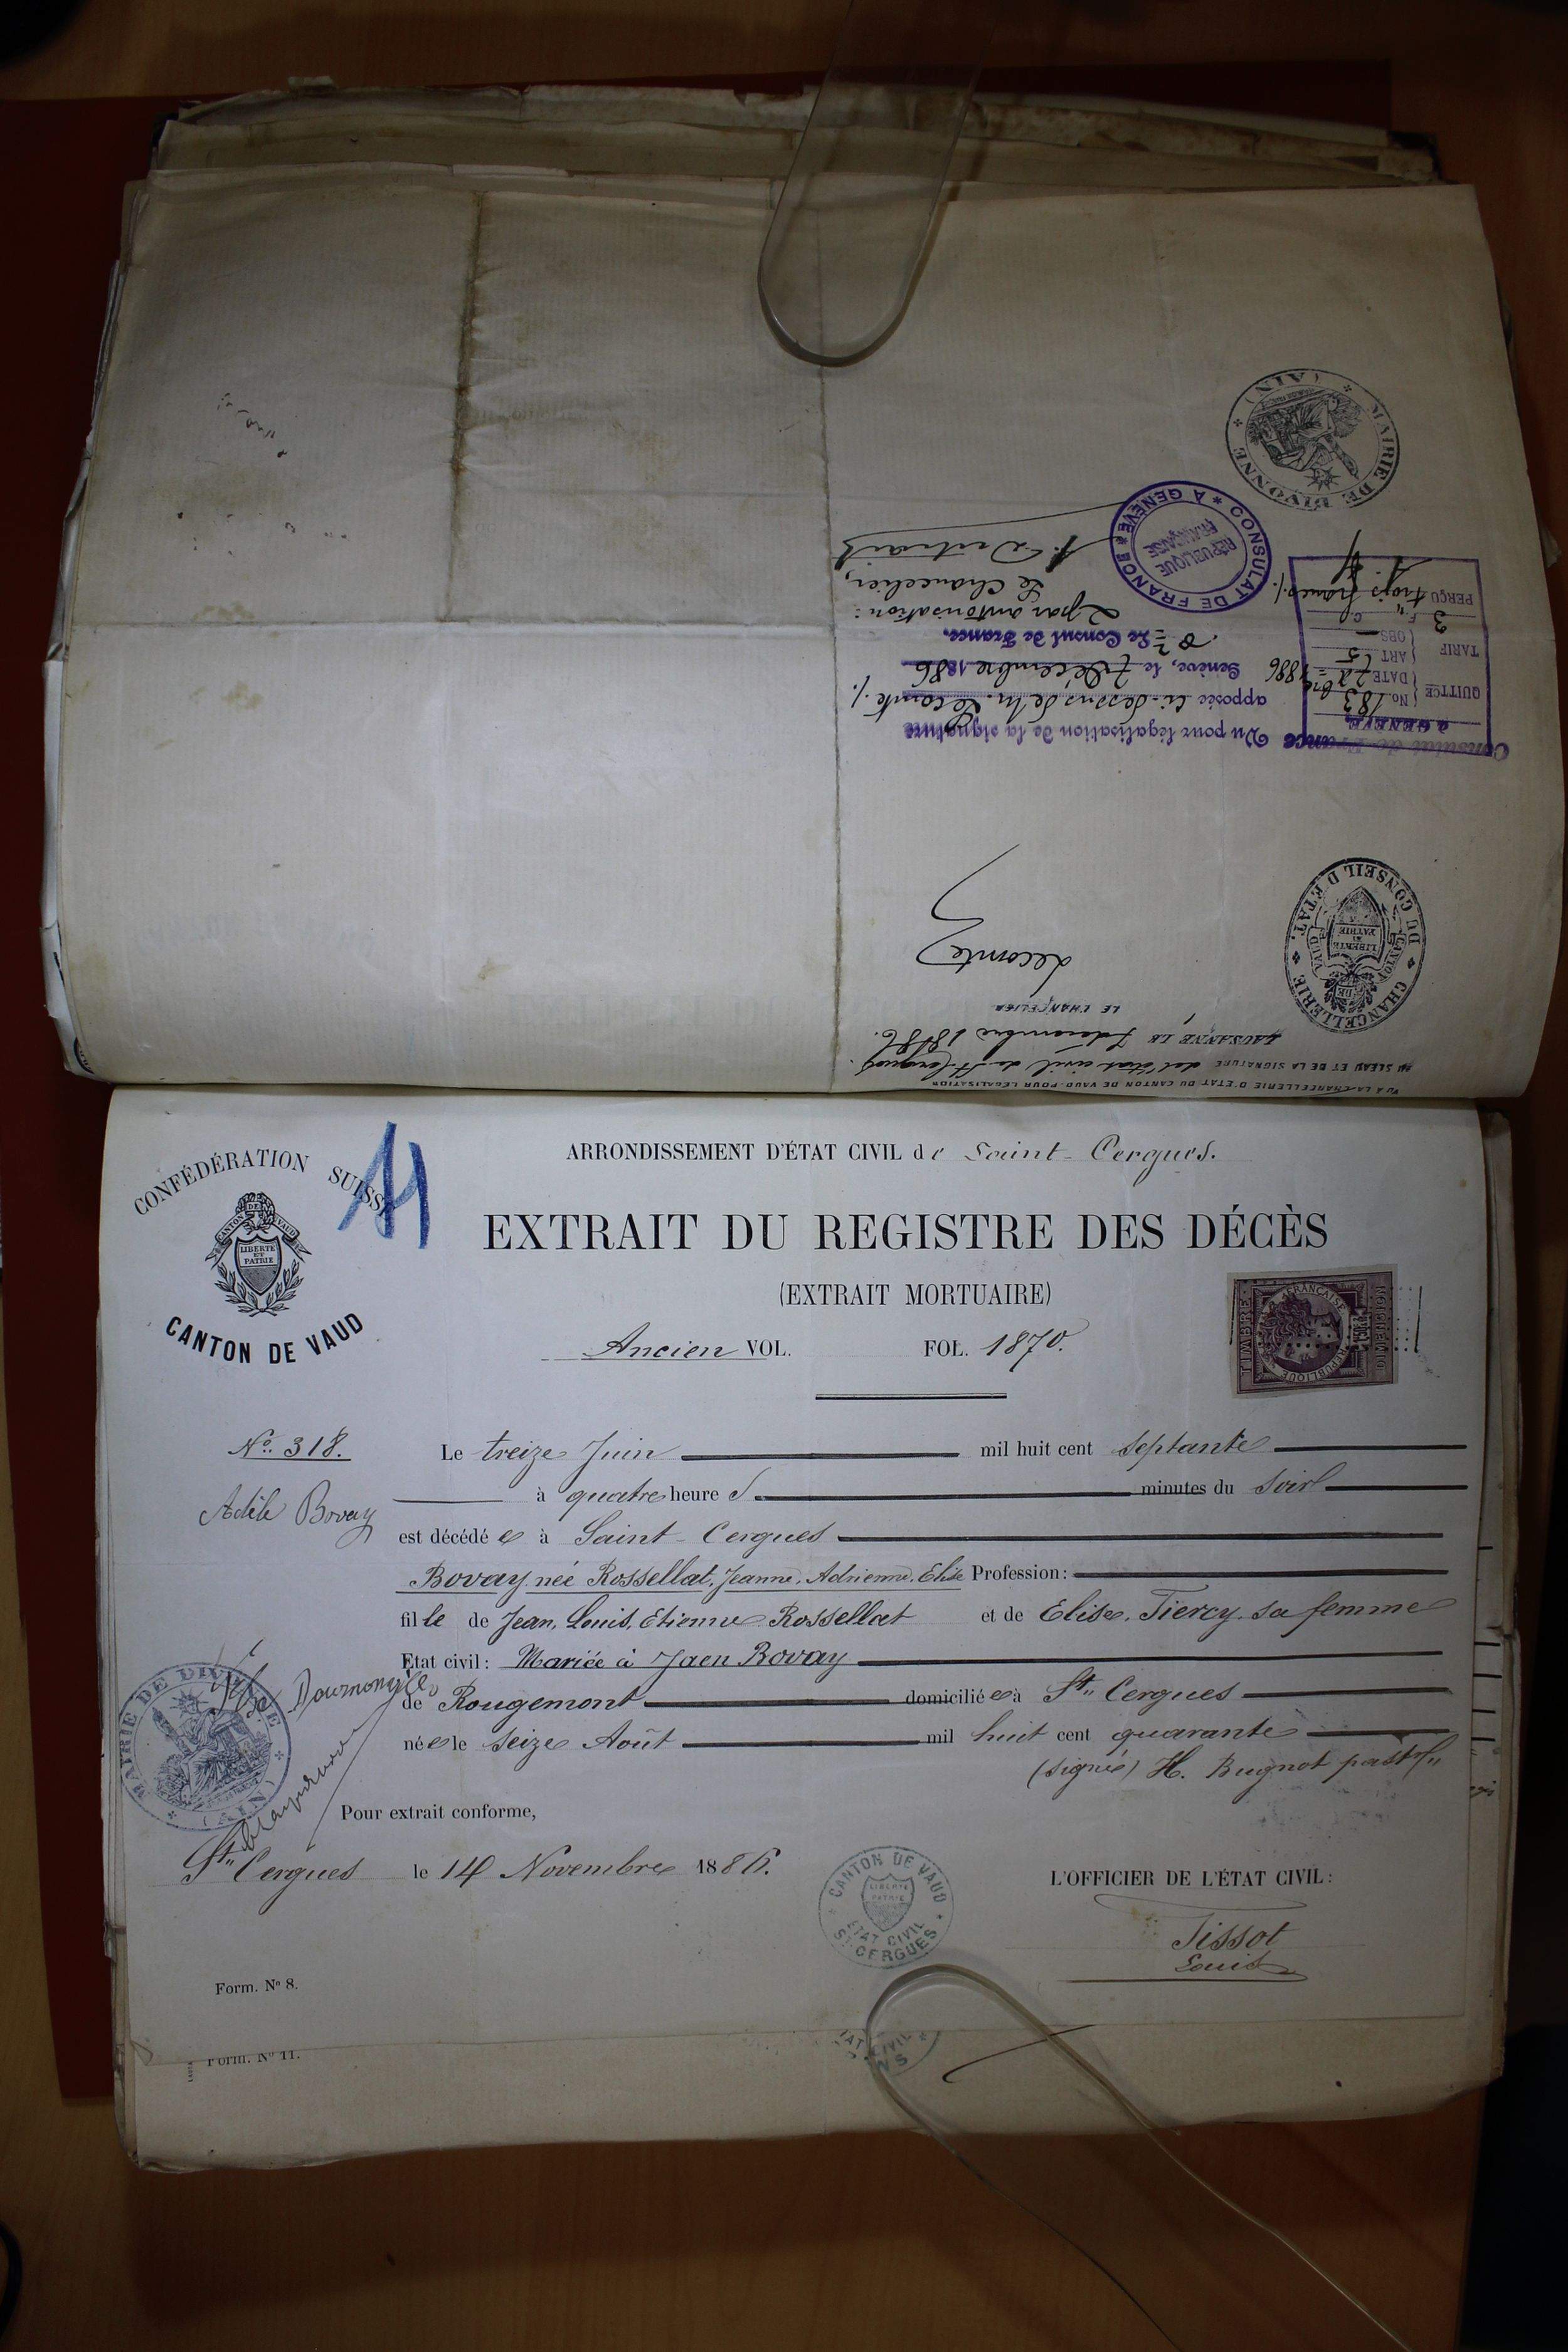 VU A LA CHANCELLERIE D'ETAT DU CANTON DE VAUD POUR LEGALISATION
DU SCEAU ET DE LA SIGNATURE de l'état civil de St Cergues.
LAUSANNE LE 7 décembre 1886.
LE CHANCELIER
Lecomte
CHANCELLERIE DU CONSEIL D'ETAT
CANTON DE VAUD
LIBERTE ET PATRIE
Consulat de France
à GENÈVE
QUITTCE No 183
DATE 7 Xbre 1886
TARIF ART 65
OBS
3 F. " C.
PERÇU trois francs /.
Vu pour légalisation de la signature
apposée ci-dessus de M. Lecomte /.
Genève, le 7 Décembre 1886
Le Consul de France,
par autorisation:
Le Chancelier,
CONSULAT DE FRANCE * A GENÈVE *
RÉPUBLIQUE FRANÇAISE
MAIRIE DE DIVONNE (AIN)
CONFÉDÉRATION SUISSE
CANTON DE VAUD
LIBERTE ET PATRIE
CANTON DE VAUD
ARRONDISSEMENT D'ÉTAT CIVIL de Saint-Cergues.
EXTRAIT DU REGISTRE DES DÉCÈS
(EXTRAIT MORTUAIRE)
TIMBRE
REPUBLIQUE FRANÇAISE
Ancien VOL. FOL. 1870.
No. 318. Le treize Juin mil huit cent septante
Adèle Bovay à quatre heure s minutes du soir
est décédé e à Saint-Cergues
Bovay née Rossellat, Jeanne, Adrienne, Elise Profession:
fil le de Jean, Louis, Etienne Rossellat et de Elise, Tiercy sa femme
Etat civil: Mariée à Jaen Bovay
de Rougemont domicilié e à St. Cergues
né e le seize Août mil huit cent quarante
(signé) H. Bugnot past.
MAIRIE DE DIVONNE (AIN)
Pour extrait conforme,
St. Cergues le 14 Novembre 1886.
CANTON DE VAUD
LIBERTE ET PATRIE
ETAT CIVIL
ST CERGUES
L'OFFICIER DE L'ÉTAT CIVIL:
Tissot
Louis
Form. No 8.
Form. No 11.